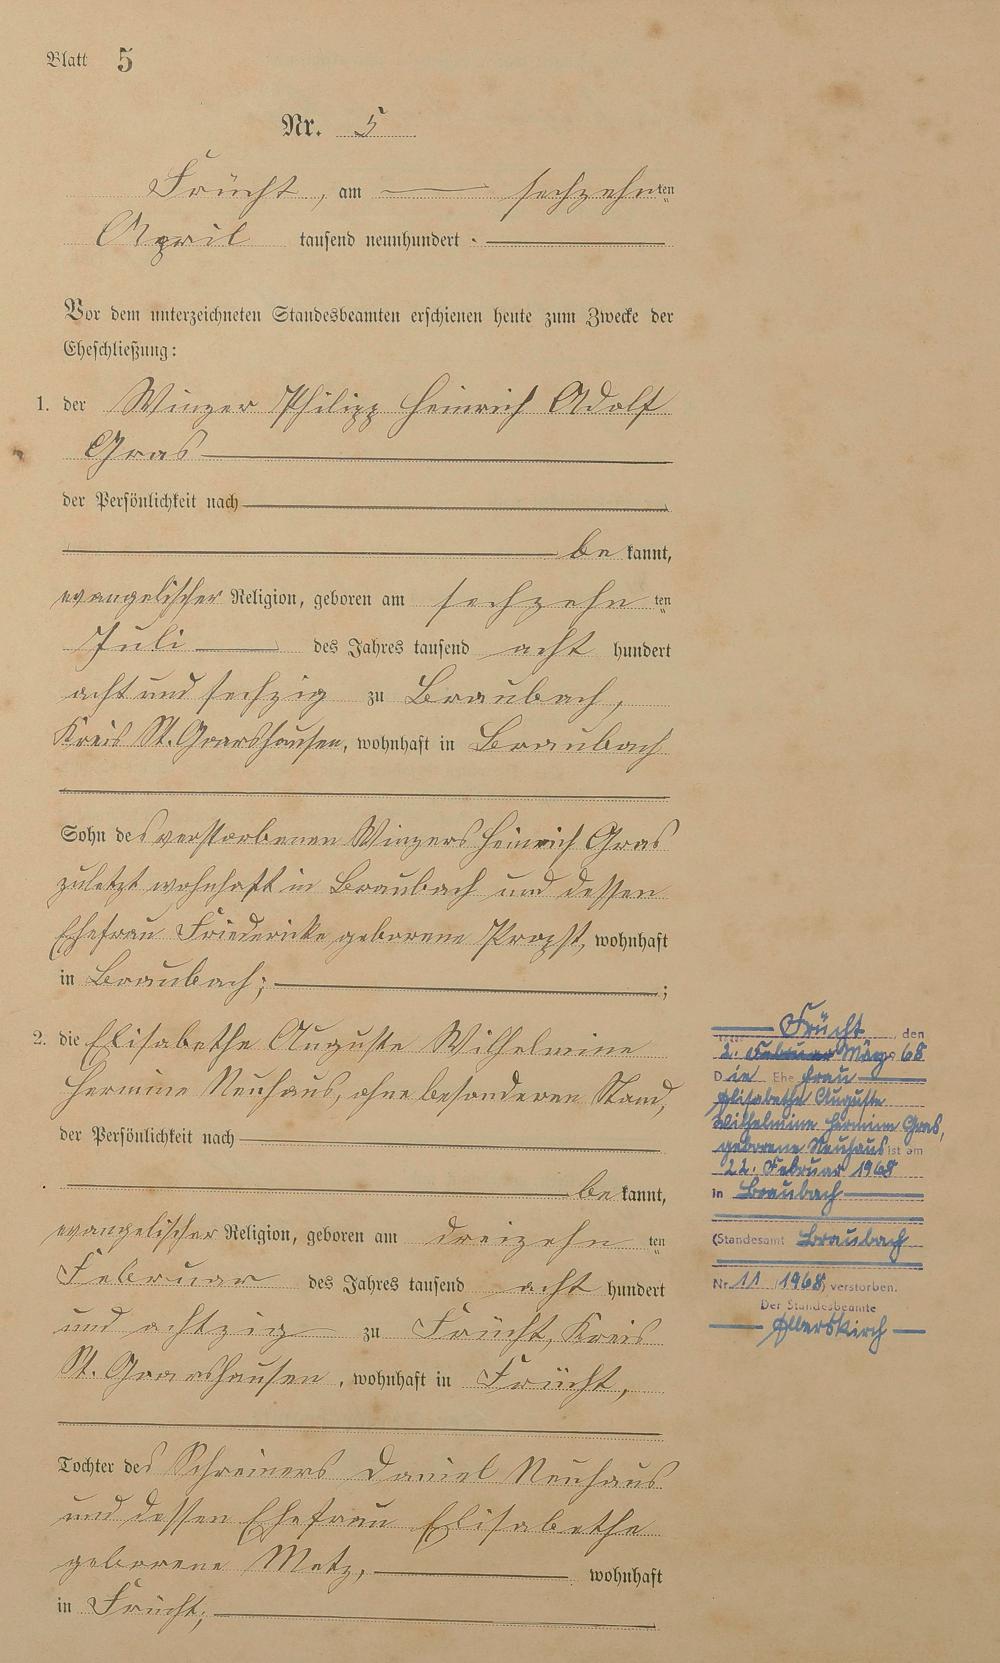 Blatt 5
Nr. 5
Frücht, am — sechzehnten
April tausend neunhundert
Vor dem unterzeichneten Standesbeamten erschienen heute zum Zwecke der
Eheschließung:
1. der Winzer Philipp Heinrich Adolf
Gras
der Persönlichkeit nach
be kannt,
evangelischer Religion, geboren am sechzehn ten
Juli des Jahres tausend acht hundert
acht und sechzig zu Braubach,
Kreis St. Goarshausen, wohnhaft in Braubach
Sohn des verstorbenen Winzers Heinrich Gras
zuletzt wohnhaft in Braubach und dessen
Ehefrau Friedericke geborene Propst, wohnhaft
in Braubach; ;
2. die Elisabethe Auguste Wilhelmine
Hermine Neuhaus, ohne besonderen Stand,
der Persönlichkeit nach
be kannt,
evangelischer Religion, geboren am dreizehn ten
Februar des Jahres tausend acht hundert
und achtzig zu Frücht, Kreis
St. Goarshausen, wohnhaft in Frücht,
Tochter des Schreiners Daniel Neuhaus
und dessen Ehefrau Elisabethe
geborene Metz, wohnhaft
in Frücht;
Frücht, den
2. Februar März 68
Die Ehe frau
Elisabethe Auguste
Wilhelmine Hermine Gras,
geborene Neuhaus ist am
22. Februar 1968
in Braubach
(Standesamt Braubach
Nr. 11 / 1968) verstorben.
Der Standesbeamte